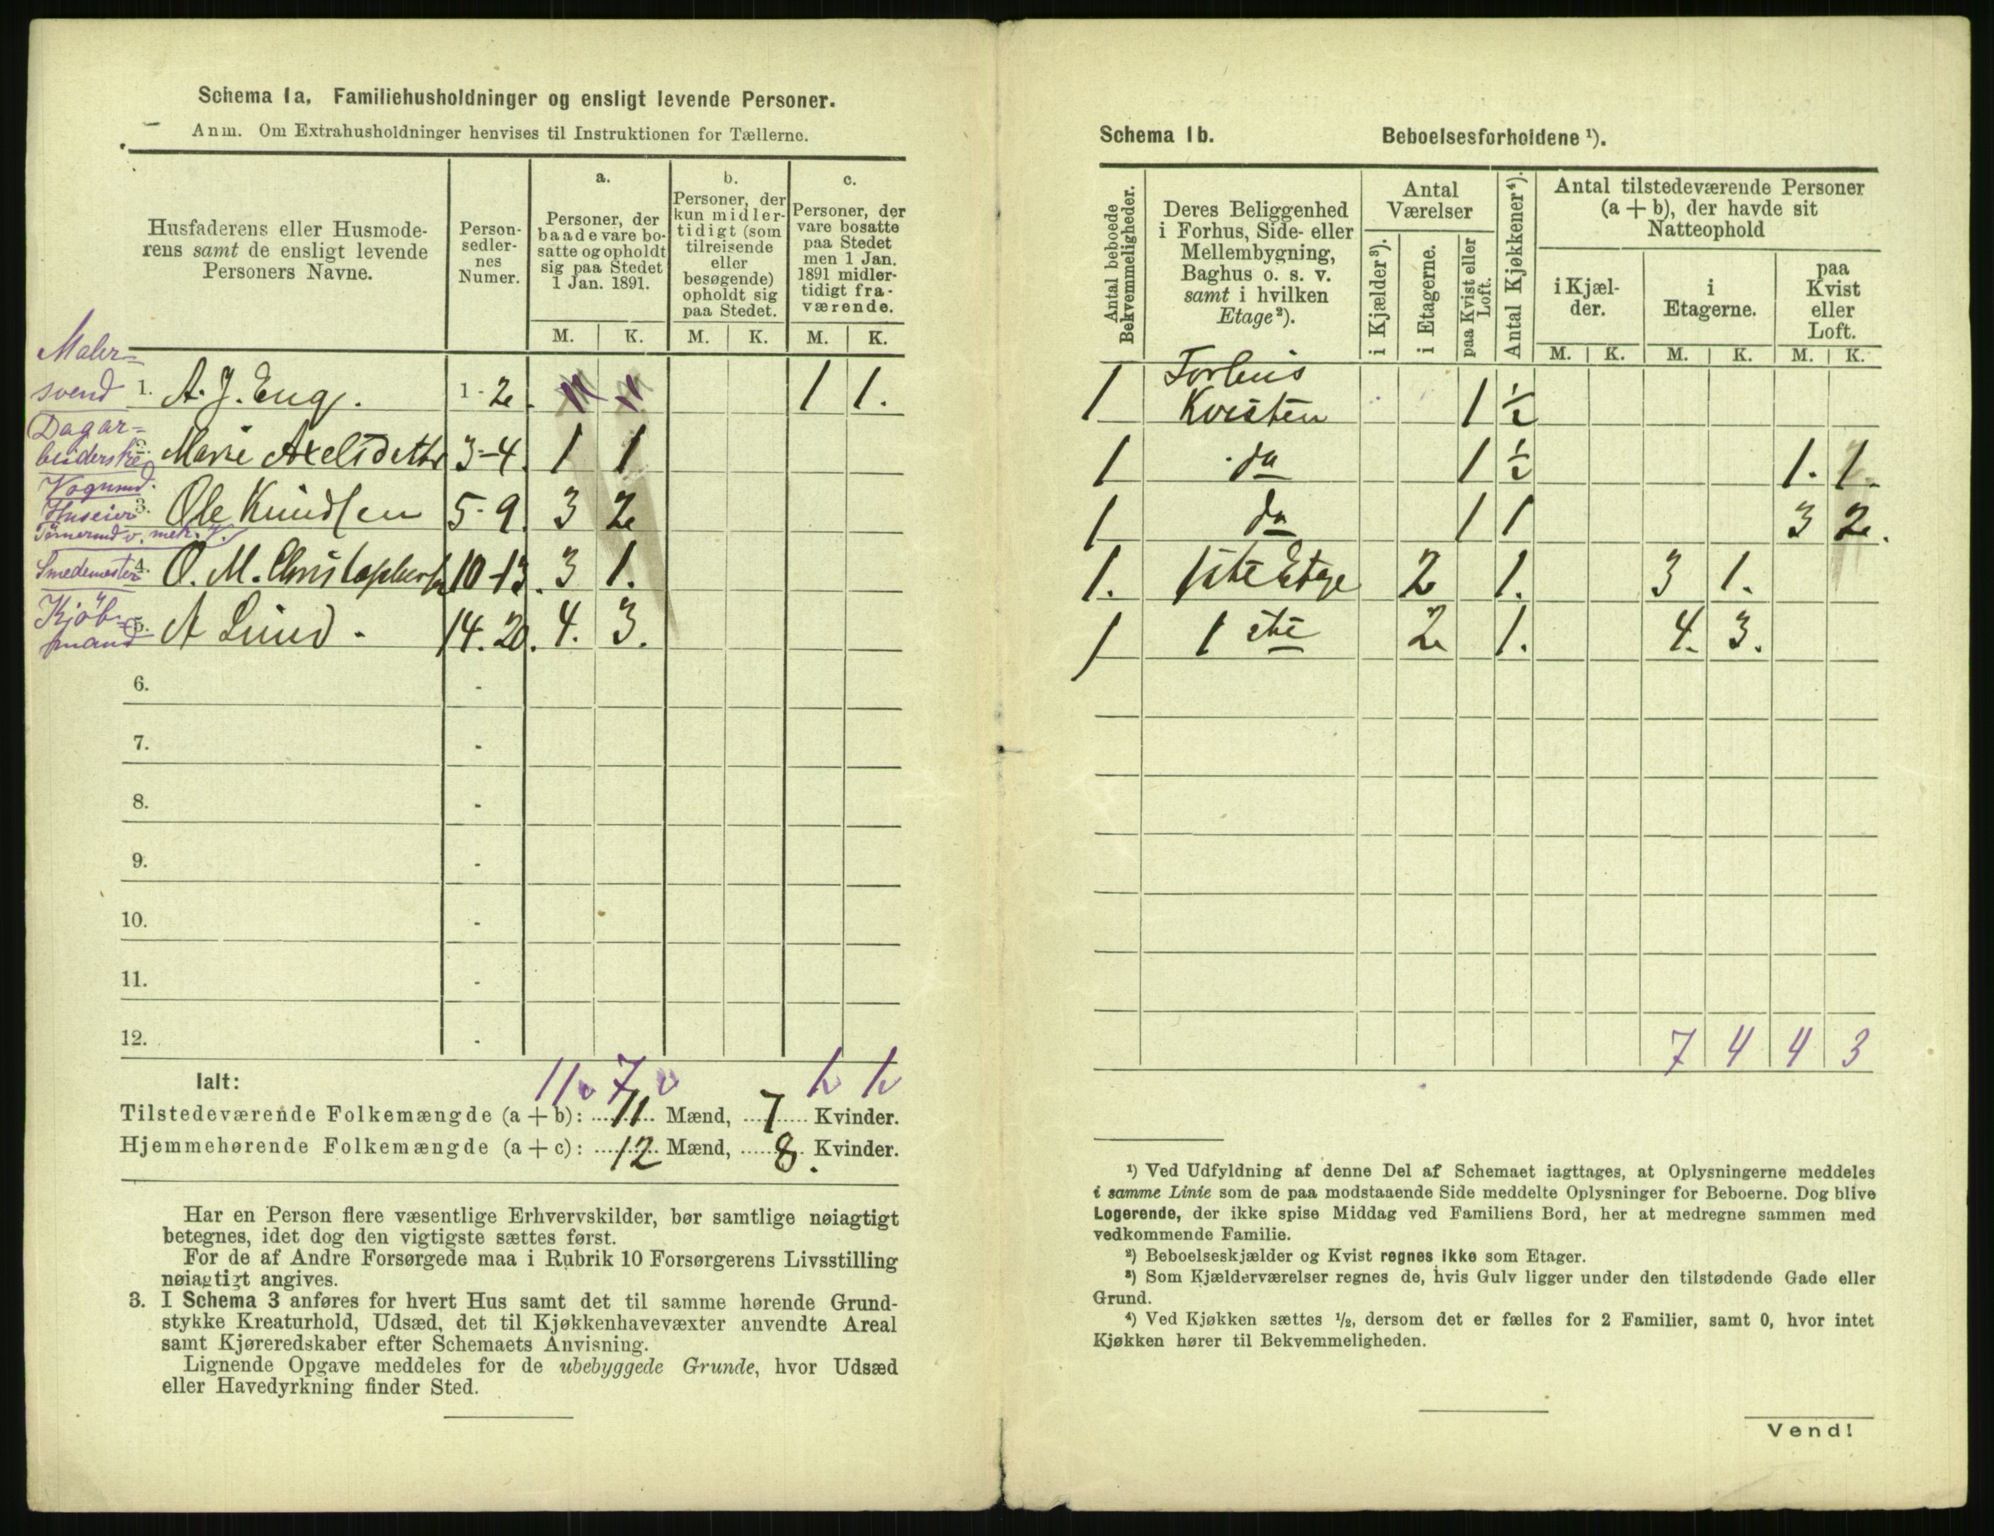 Schema 1a. Familiehusholdninger og ensligt levende Personer.
Anm. Om Extrahusholdninger henvises til Instruktionen for Tællerne.
Husfaderens eller Husmoderens samt de ensligt levende Personers Navne.
Personsedlernes Numer.
a.
Personer, der baade vare bosatte og opholdt sig paa Stedet 1 Jan. 1891.
b.
Personer, der kun midlertidigt (som tilreisende eller besøgende) opholdt sig paa Stedet.
c.
Personer, der vare bosatte paa Stedet men 1 Jan. 1891 midlertidigt fraværende.
M. K. M. K. M. K.
Malersvend 1. A. J. Eng. 1-2. 1 1.
Dagarbeiderske 2. Marie Axelsdatter 3-4. 1 1
Vognmd. Huseier 3. Ole Knudsen 5-9. 3 2
Smedemester 4. O. M. Christophersen 10-13. 3 1.
Kjöbmand 5. A Lund. 14.20. 4. 3.
6. -
7. -
8. -
9. -
10. -
11. -
12. -
11 7 1 1
Ialt:
Tilstedeværende Folkemængde (a + b): 11 Mænd, 7 Kvinder.
Hjemmehørende Folkemængde (a + c): 12 Mænd, 8. Kvinder.
Har en Person flere væsentlige Erhvervskilder, bør samtlige nøiagtigt
betegnes, idet dog den vigtigste sættes først.
For de af Andre Forsørgede maa i Rubrik 10 Forsørgerens Livsstilling
nøiagtigt angives.
3. I Schema 3 anføres for hvert Hus samt det til samme hørende Grund-
stykke Kreaturhold, Udsæd, det til Kjøkkenhavevæxter anvendte Areal
samt Kjøreredskaber efter Schemaets Anvisning.
Lignende Opgave meddeles for de ubebyggede Grunde, hvor Udsæd
eller Havedyrkning finder Sted.
Schema 1b. Beboelsesforholdene ¹).
Antal beboede Bekvemmeligheder.
Deres Beliggenhed i Forhus, Side- eller Mellembygning, Baghus o. s. v. samt i hvilken Etage²).
Antal Værelser
i Kjælder³).
i Etagerne.
paa Kvist eller Loft.
Antal Kjøkkener⁴).
Antal tilstedeværende Personer (a + b), der havde sit Natteophold
i Kjælder.
i Etagerne.
paa Kvist eller Loft.
M. K. M. K. M. K.
1 Forhus Kvisten 1 ½
1 do 1 ½ 1. 1.
1 do 1 1 3 2.
1. 1ste Etage 2 1. 3 1.
1 1ste 2 1. 4. 3.
7 4 4 3
¹) Ved Udfyldning af denne Del af Schemaet iagttages, at Oplysningerne meddeles
i samme Linie som de paa modstaaende Side meddelte Oplysninger for Beboerne. Dog blive
Logerende, der ikke spise Middag ved Familiens Bord, her at medregne sammen med
vedkommende Familie.
²) Beboelseskjælder og Kvist regnes ikke som Etager.
³) Som Kjælderværelser regnes de, hvis Gulv ligger under den tilstødende Gade eller
Grund.
⁴) Ved Kjøkken sættes ½, dersom det er fælles for 2 Familier, samt 0, hvor intet
Kjøkken hører til Bekvemmeligheden.
Vend!